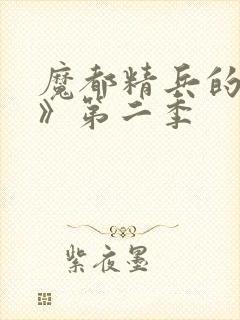 魔都精兵的
》第二季
紫夜墨